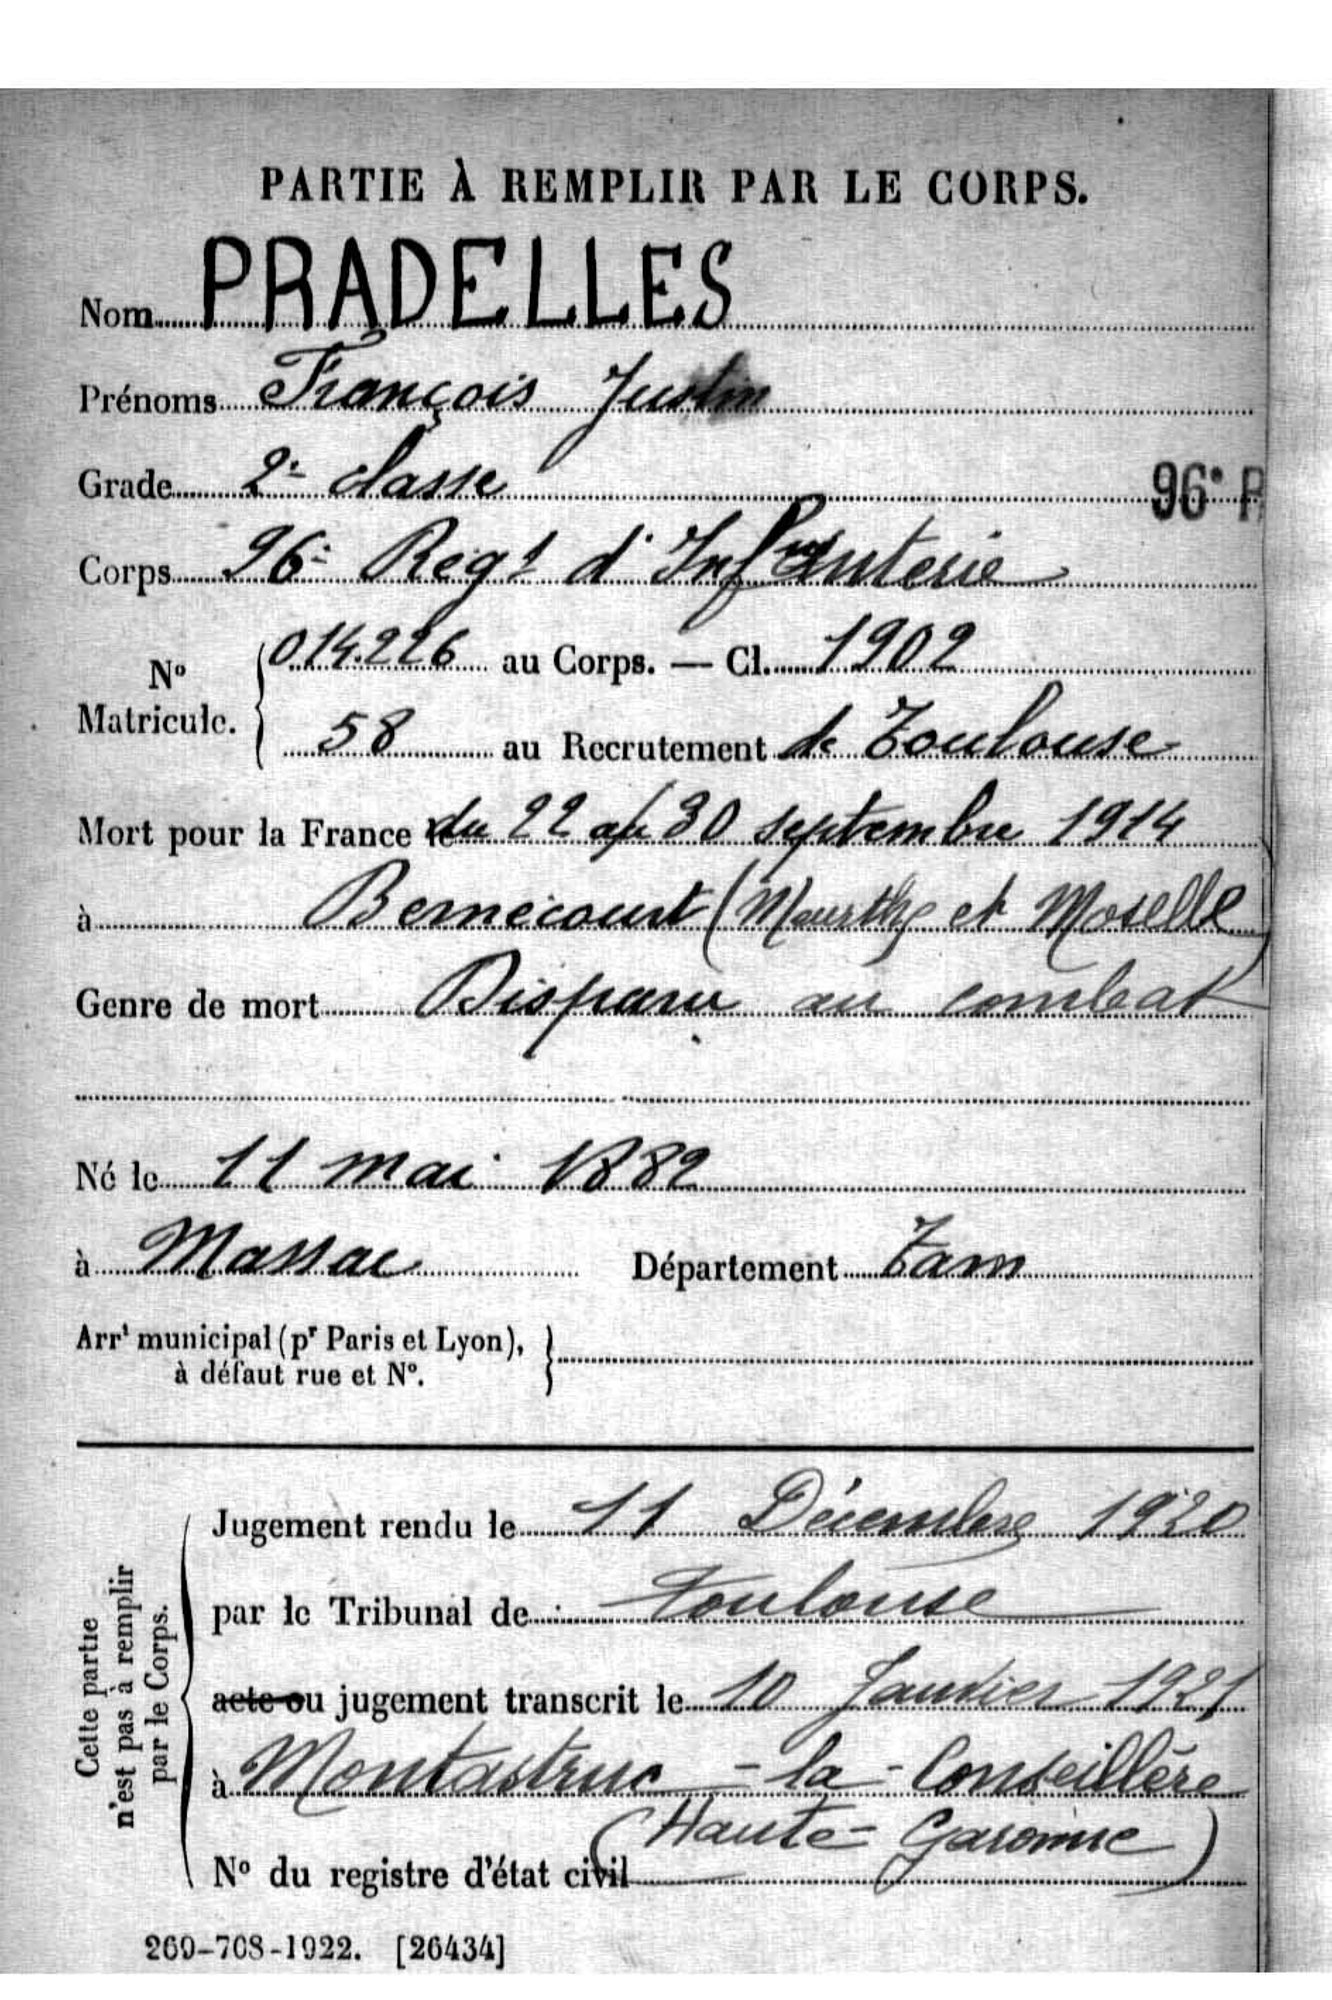 PARTIE À REMPLIR PAR LE CORPS.
Nom PRADELLES
Prénoms François Justin
Grade 2e classe
96e R
Corps 96e Régt d'Infanterie
No Matricule. 014.226 au Corps. — Cl. 1902
58 au Recrutement de Toulouse
Mort pour la France du 22 au 30 septembre 1914
à Bernécourt (Meurthe et Moselle)
Genre de mort Disparu au combat
Né le 11 mai 1882
à Massac Département Tarn
Arrt municipal (pr Paris et Lyon),
à défaut rue et No.
Cette partie
n'est pas à remplir
par le Corps.
Jugement rendu le 11 Décembre 1920
par le Tribunal de Toulouse
acte ou jugement transcrit le 10 Janvier 1921
à Montastruc-la-Conseillère
(Haute-Garonne)
No du registre d'état civil
260-708-1922. [26434]